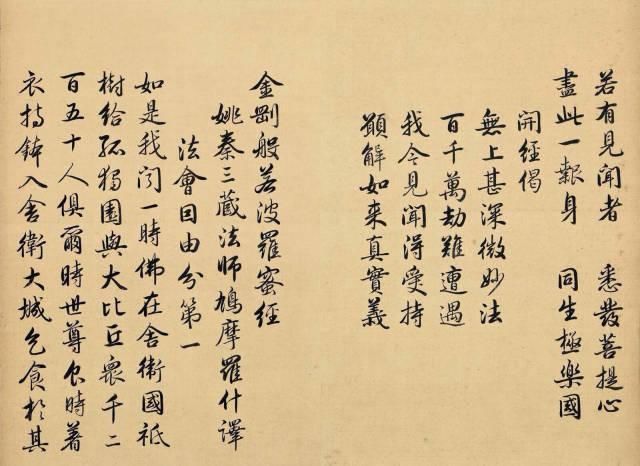 若有見聞者 悉發菩提心
盡此一報身 同生極樂國
開經偈
無上甚深微妙法
百千萬劫難遭遇
我今見聞得受持
願解如来真實義
金剛般若波羅蜜經
姚秦三蔵法師鳩摩羅什譯
法會因由分第一
如是我聞一時佛在舍衛國祇
樹給孤獨園與大比丘衆千二
百五十人俱爾時世尊食時著
衣持鉢入舍衛大城乞食於其